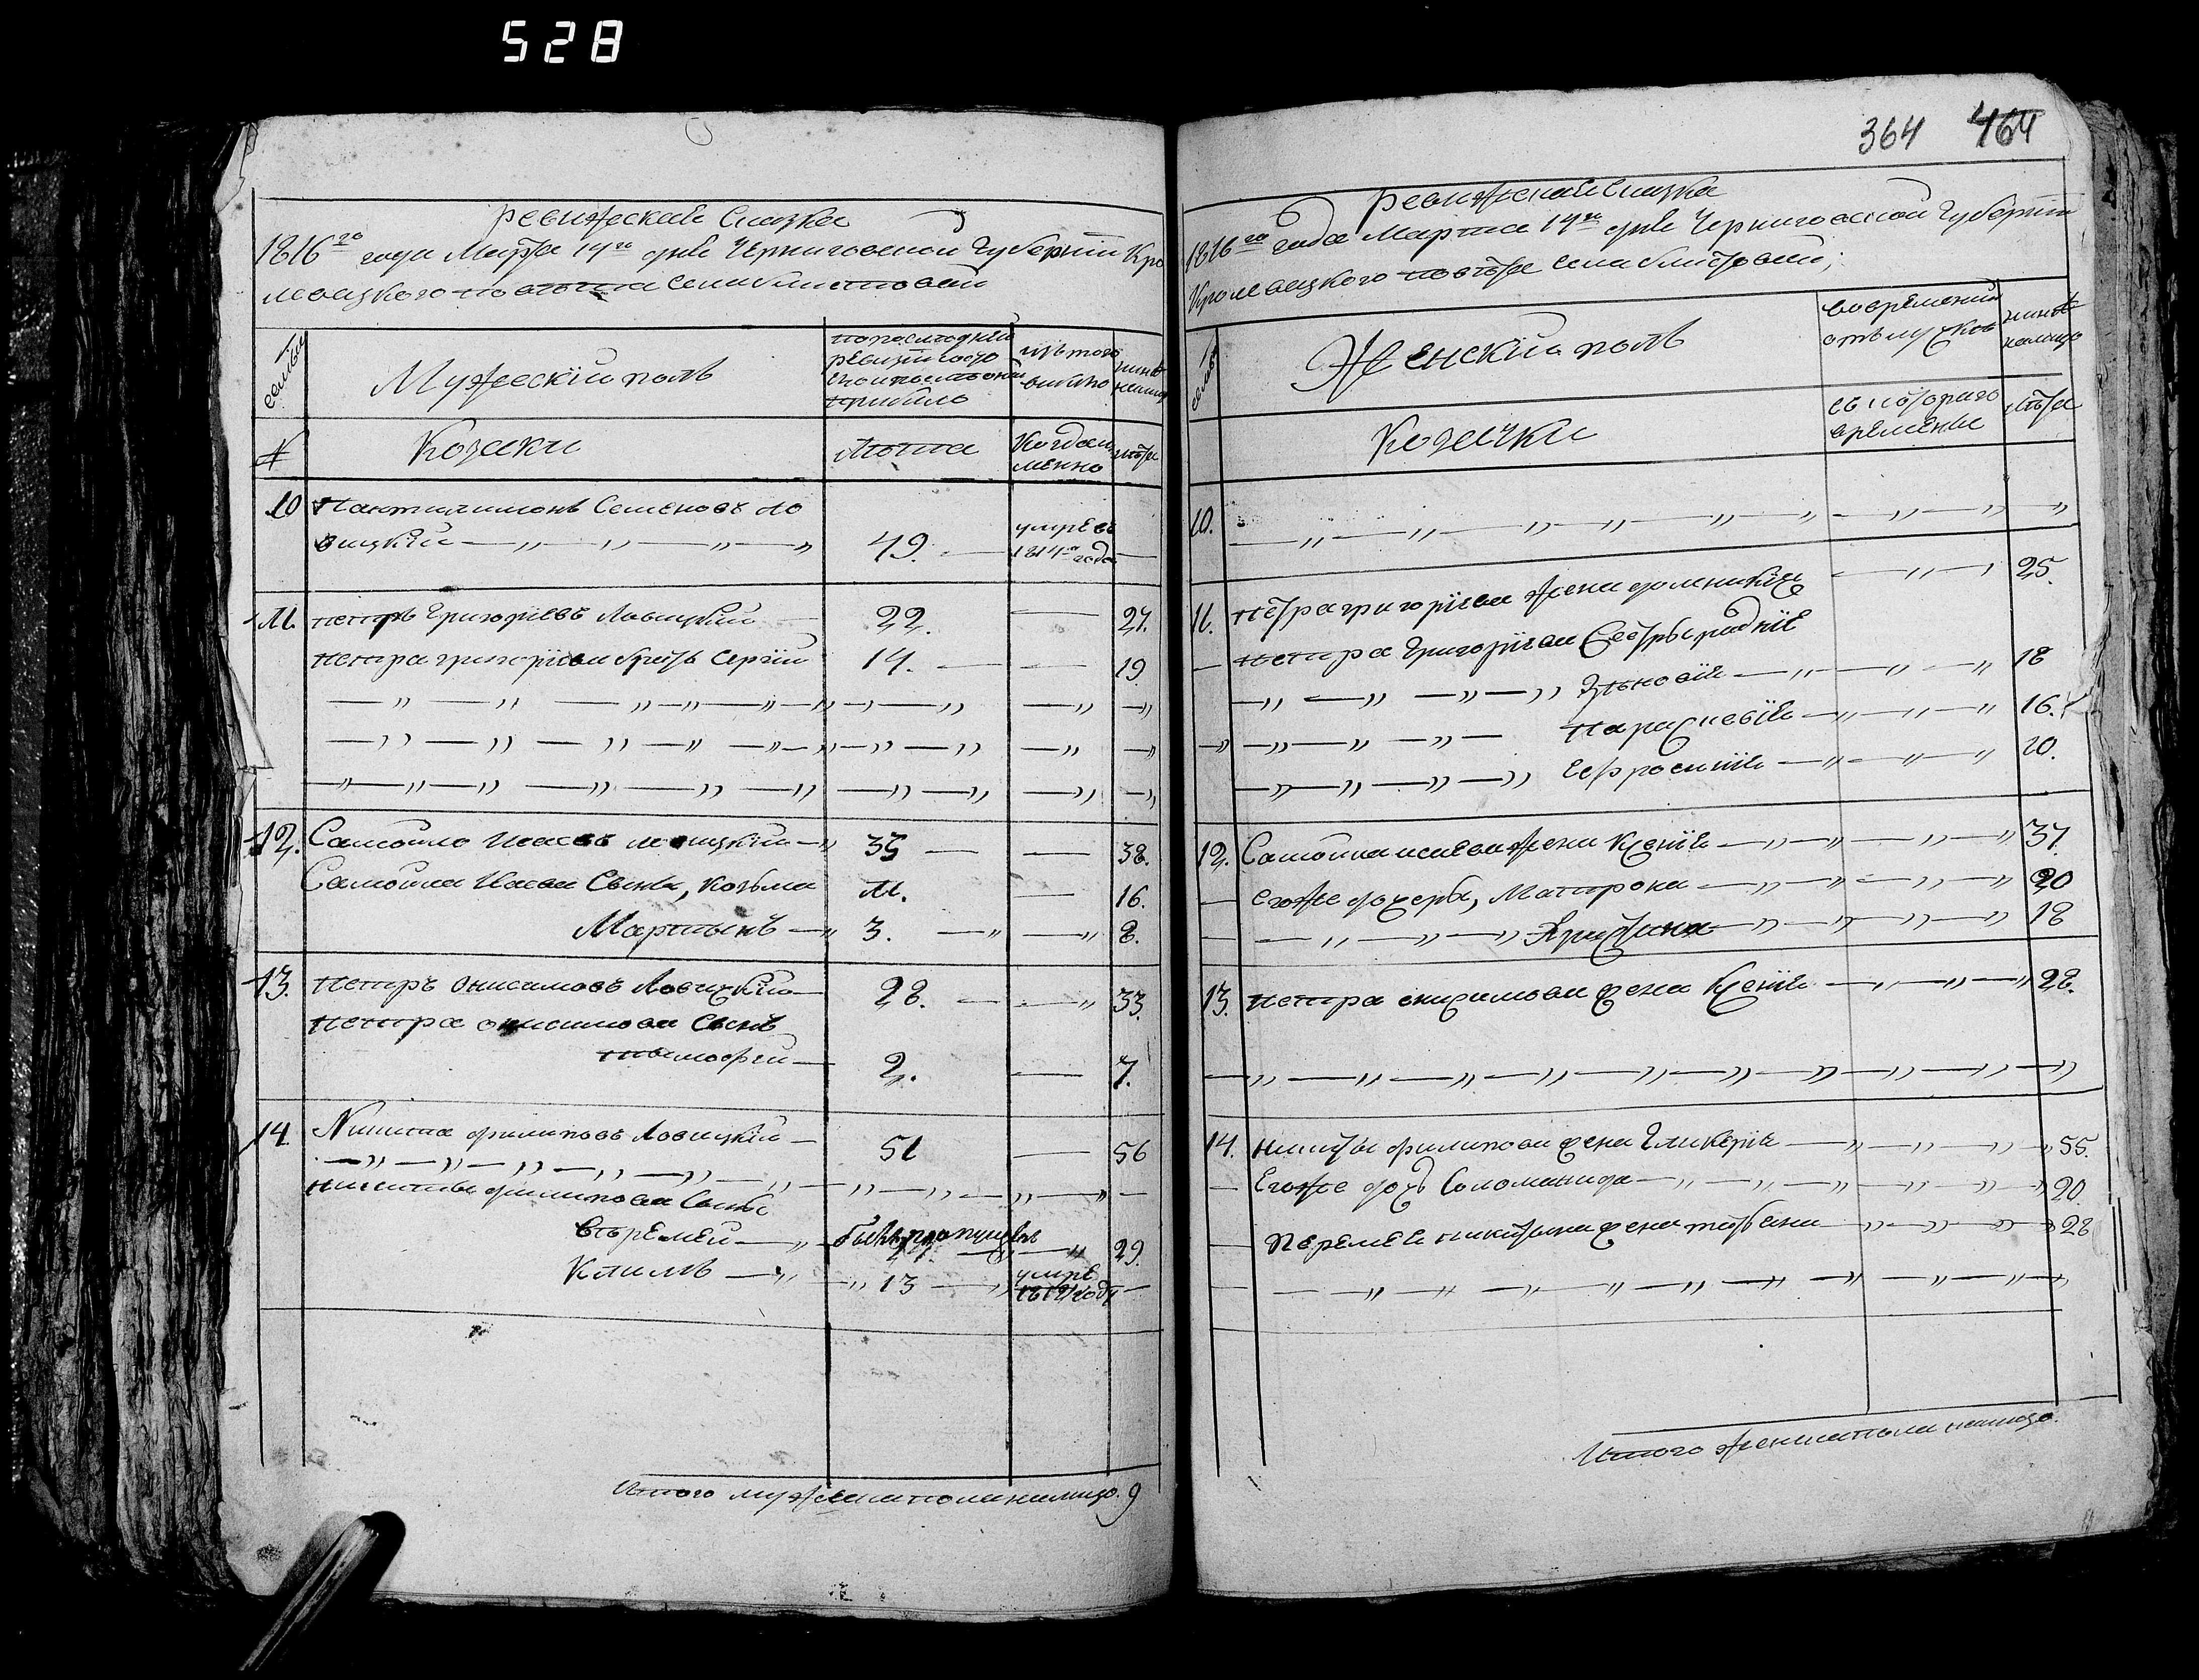 528
364 464
Ревижская Сказка
1816го года Марта 14го дня Черниговской Губернїи Кро
левецкого повѣта села Клистовой
семьи
Мужескїй полъ
по последней
ревизїи
прибыло
изъ того
выбыло
нинѣ
№
Козаки
Лѣта
Когда и
менно
лѣта
10 Пантилимонъ Семеновъ Ло
вицкїй 49. умре въ
1814м года
11. Петръ Григорїевъ Ловицкїй 22. 27.
Петра григорїева братъ Сергїй 14. 19
12. Самойло Исаевъ Ловицкїй 33 38.
Самойла Исаева Сынъ, Козьма 11. 16.
Мартынъ 3. 8.
13. Петръ Онисимовъ Ловицкїй 28. 33.
Петра онисимова Сынъ
тимофей 2. 7.
14. Никита филиповъ Ловицкїй 51 56
Никиты филипова Сыны
Еремей былъ пропущенъ 29.
Климъ 13 умре
1812 года
Итого мужеска пола налицо. 9
Ревижская Сказка
1816го года Марта 14го дня Черниговской Губернїи
Кролевецкого повѣта села Клистовой;
семьи
Женскїй полъ
во временной
отлучкѣ
нинѣ
налицо
Козачки
съ которого
времены
лѣта
10.
11. Петра григорїева жена домникїя 25.
Петра Григорїева Сестры родніе
Зѣновїя 18
Параскевїя 16.
Ефросинїя 10.
12. Самойла исаева жена Ксенїя 37.
егоже дочеры, Матрона 20
Христина 18
13. Петра онисимова жена Ксенїя 28.
14. Никиты филипова жена Гликерїя 55.
Егоже дочь Соломанида 20
Еремея никитина жена татьяна 28
Итого женска пола налицо.